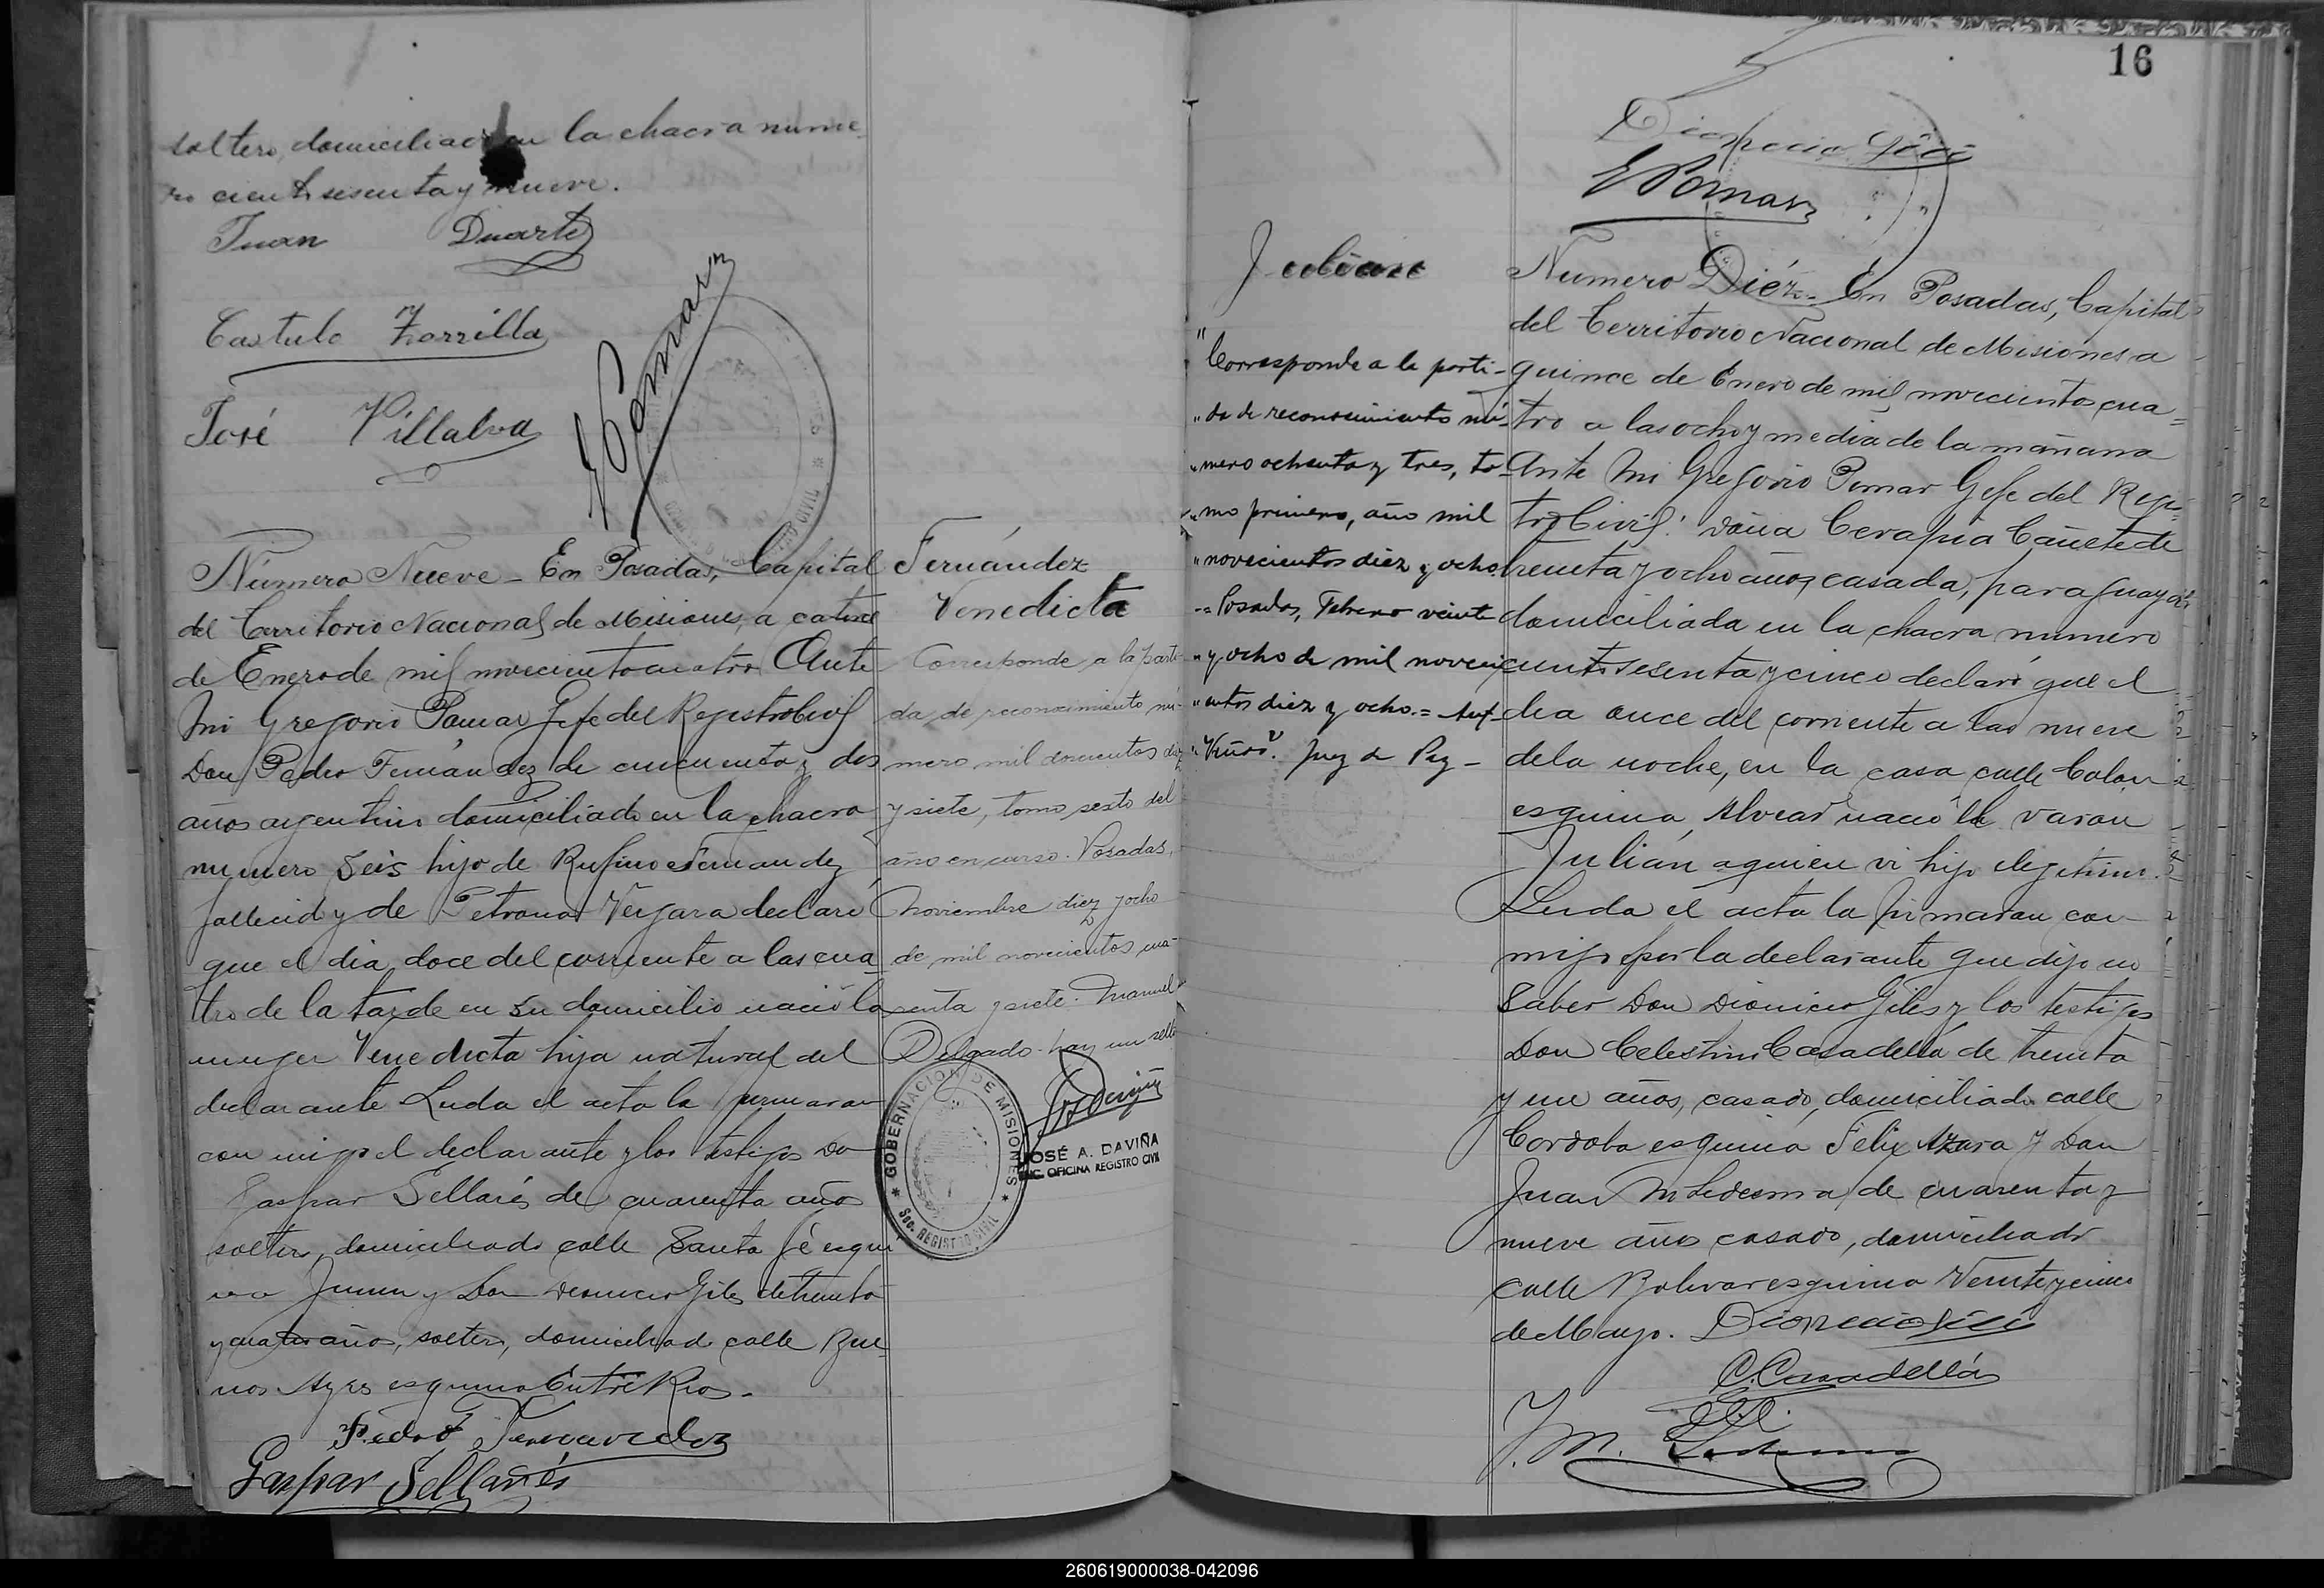 soltero, domiciliado en la chacra nume-
ro ciento sesenta y nueve.
Juan Duarte
Castulo Zorrilla
José Villalva
G Pomar
Número Nueve - En Posadas, Capital
del Territorio Nacional de Misiones, a catorce
de Enero de mil novecientos cuatro Ante
Mi Gregorio Pomar Gefe del Registro Civil
Don Pedro Fernandez de cincuenta y dos
años argentino domiciliado en la chacra
numero Seis hijo de Rufino Fernandez
fallecido y de Petrona Vergara declaró
que el dia doce del corriente a las cua
tro de la tarde en su domicilio nació la
muger Venedicta hija natural del
declarante Leida el acta la firmaron
con migo el declarante y los testigos Don
Gaspar Sellarés de cuarenta años
soltero, domiciliado calle Santa Fé esqui
na Junin y Don Dionicio Giles de treinta
y cuatro años, soltero, domiciliado calle Bue
nos Ayres esquina Entre Rios.
Pedro Fernandez
Gaspar Sellarés
Fernández
Venedicta
Corresponde a la parti-
da de reconocimiento nú-
mero mil doscientos diez
y siete, tomo sexto del
año en curso. Posadas,
Noviembre diez y ocho
de mil novecientos cua-
renta y siete. Manuel
Delgado - hay un sello
GOBERNACION DE MISIONES
Sec. REGISTRO CIVIL
JOSÉ A. DAVIÑA
ENC. OFICINA REGISTRO CIVIL
16
G Pomar
Julian
"Corresponde a la parti-
"da de reconocimiento nú-
"mero ochenta y tres, to-
"mo primero, año mil
"novecientos diez y ocho.
"=Posadas, Febrero veinte
"y ocho de mil noveci-
"entos diez y ocho.=
Juez de Paz -
Número Diéz - En Posadas, Capital
del Territorio Nacional de Misiones a
quince de Enero de mil novecientos cua-
tro a las ocho y media de la mañana
Ante Mi Gregorio Pomar Gefe del Regis-
tro Civil: Doña Cerapia Cañete de
treinta y ocho años, casada, paraguaya
domiciliada en la chacra numero
ciento sesenta y cinco declaró que el
dia once del corriente a las nueve
de la noche, en la casa calle Colon
esquina Alvear nació el varon
Julián a quien vi hijo ilegitimo.
Leida el acta la firmaron con
migo por la declarante que dijo no
saber Don Dionicio Giles y los testigos
Don Celestino Casadellá de treinta
y un años, casado, domiciliado calle
Cordoba esquina Felix Azara y Don
Juan M Ledesma de cuarenta y
nueve años casado, domiciliado
calle Bolivar esquina Veinte y cinco
de Mayo. Dionicio Giles
C. Casadellá
J. M. Ledesma
260619000038-042096